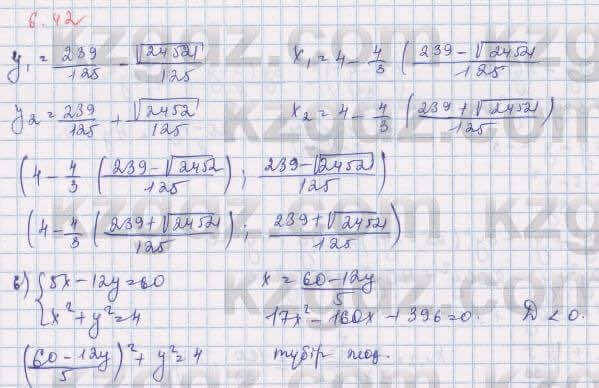 6.42
y₁ = 239/125 - √2452/125    x₁ = 4 - 4/3 (239 - √2452/125
y₂ = 239/125 + √2452/125    x₂ = 4 - 4/3 (239 + √2452/125)
(4 - 4/3 (239 - √2452/125) ; 239 - √2452/125)
(4 - 4/3 (239 + √2452/125) ; 239 + √2452/125)
в) {5x - 12y = 60    x = 60 - 12y/5
x² + y² = 4    17x² - 160x + 396 = 0. D < 0.
(60 - 12y/5)² + y² = 4    түбір жоқ.
kzgdz.com